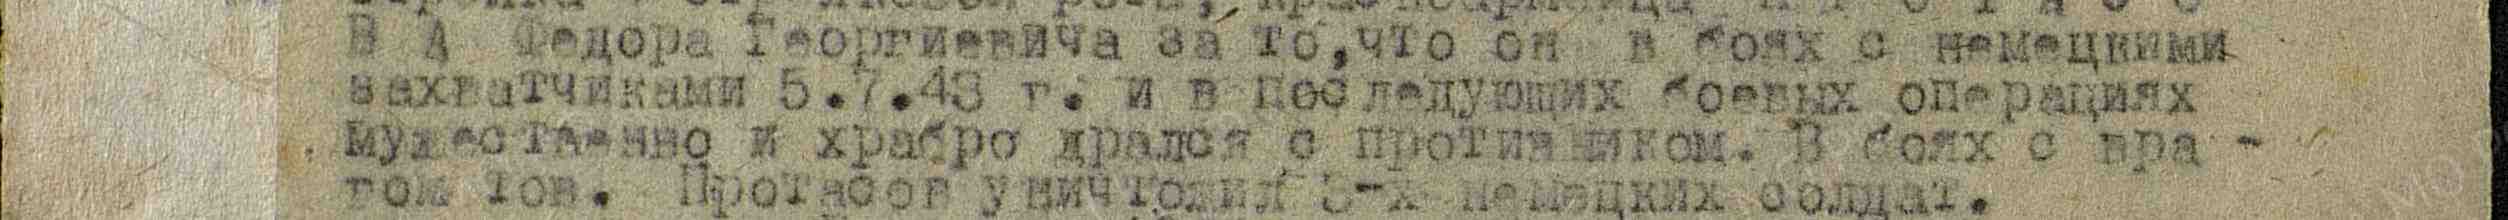 стрелка стрелковой роты, красноармейца П Р О Т А С О
В А Федора Георгиевича за то,что он в боях с немецкими
захватчиками 5.7.43 г. и в последующих боевых операциях
мужественно и храбро дрался с противником. В боях с вра -
гом тов. Протасов уничтожил 3-х немецких солдат.